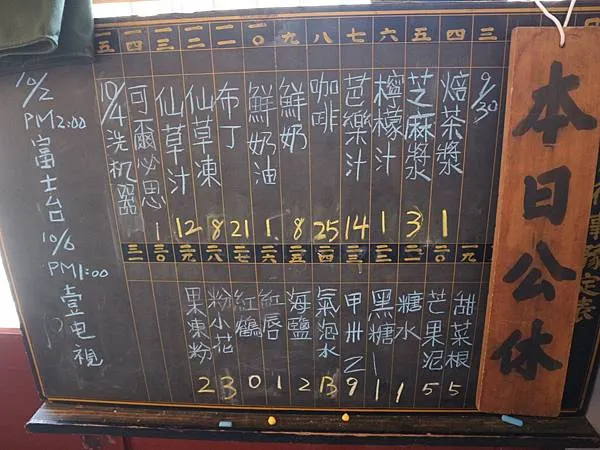 本日公休
三 四 五 六 七 八 九 一〇 一一 一二 一三 一四 一五
9/30
焙茶漿 1
芝麻漿 3
檸檬汁 1
芭樂汁 14
咖啡 25
鮮奶 8
鮮奶油 1.
布丁 21
仙草凍 8
仙草汁 12
可爾必思 1
10/4洗机器
一九 二〇 二一 二二 二三 二四 二五 二六 二七 二八 二九 三〇 三一
甜菜根 5
芒果泥 5
糖水 1
黑糖 1
甲卅乙 9
氣泡水 13
海鹽 2
紅唇 1
紅鶴 0
粉小花 3
果凍粉 2
10/2 PM2:00 富士台
10/6 PM1:00 壹电視